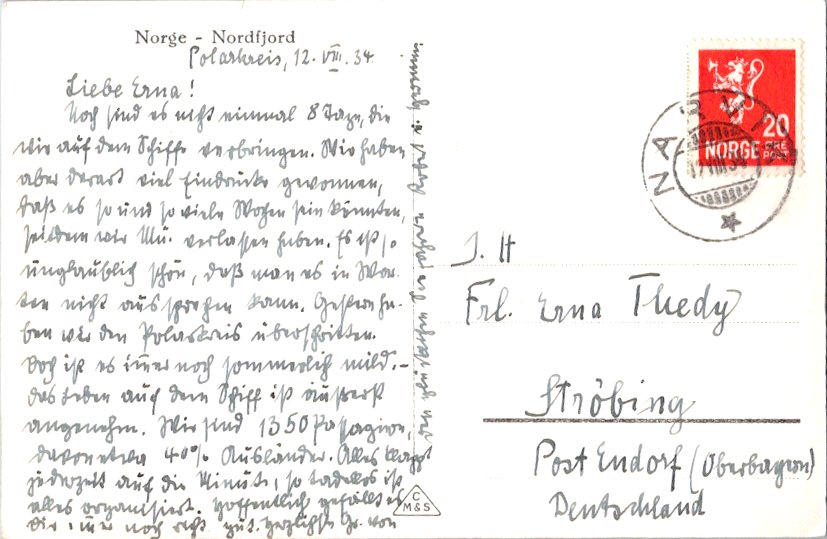 Norge - Nordfjord
Polarkreis, 12. VIII. 34
Liebe Erna!
Noch sind es nicht einmal 8 Tage, die
wir auf dem Schiffe verbringen. Wir haben
aber derart viel Eindrücke gewonnen,
daß es so und so viele Wochen sein könnten,
seitdem wir Mü. verlassen haben. Es ist so
unglaublich schön, daß man es in Wor-
ten nicht aussprechen kann. Gestern ha-
ben wir den Polarkreis überschritten.
Doch ist es immer noch sommerlich mild. -
Das Leben auf dem Schiff ist äußerst
angenehm. Wir sind 1350 Passagiere,
davon etwa 40% Ausländer. Alles klappt
jederzeit auf die Minute, so tadellos ist
alles organisiert. Hoffentlich gefällt es
Dir immer noch recht gut. Herzlichste Gr. von
C
M&S
NARVIK
12 VIII 34
20
NORGE
J. H
Frl. Erna Thedy
Ströbing
Post Endorf (Oberbayern)
Deutschland